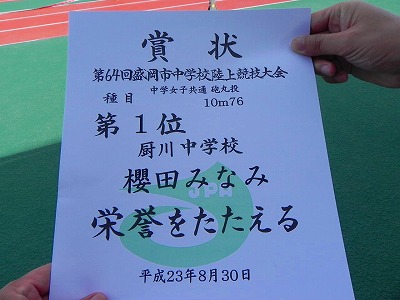 賞状
第64回盛岡市中学校陸上競技大会
中学女子共通 砲丸投
種目 10m76
第1位
厨川中学校
櫻田みなみ
JPN
栄誉をたたえる
平成23年8月30日